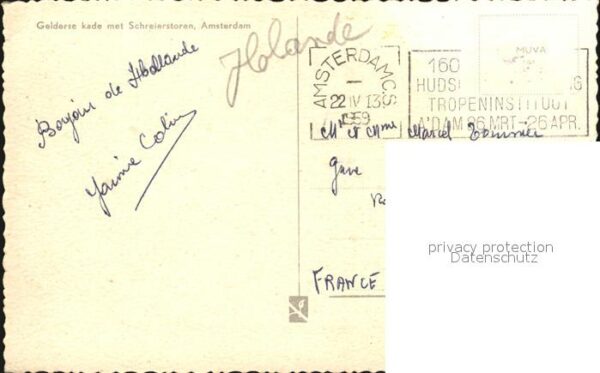 Gelderse kade met Schreierstoren, Amsterdam
Bonjour de Hollande
Colin
Holande
AMSTERDAM CS
22 IV 13
1959
MUVA
160
HUDS G
TROPENINSTITUUT
A'DAM 26 MRT-26 APR.
Mr et Mme Marcel
Gare
FRANCE
privacy protection
Datenschutz